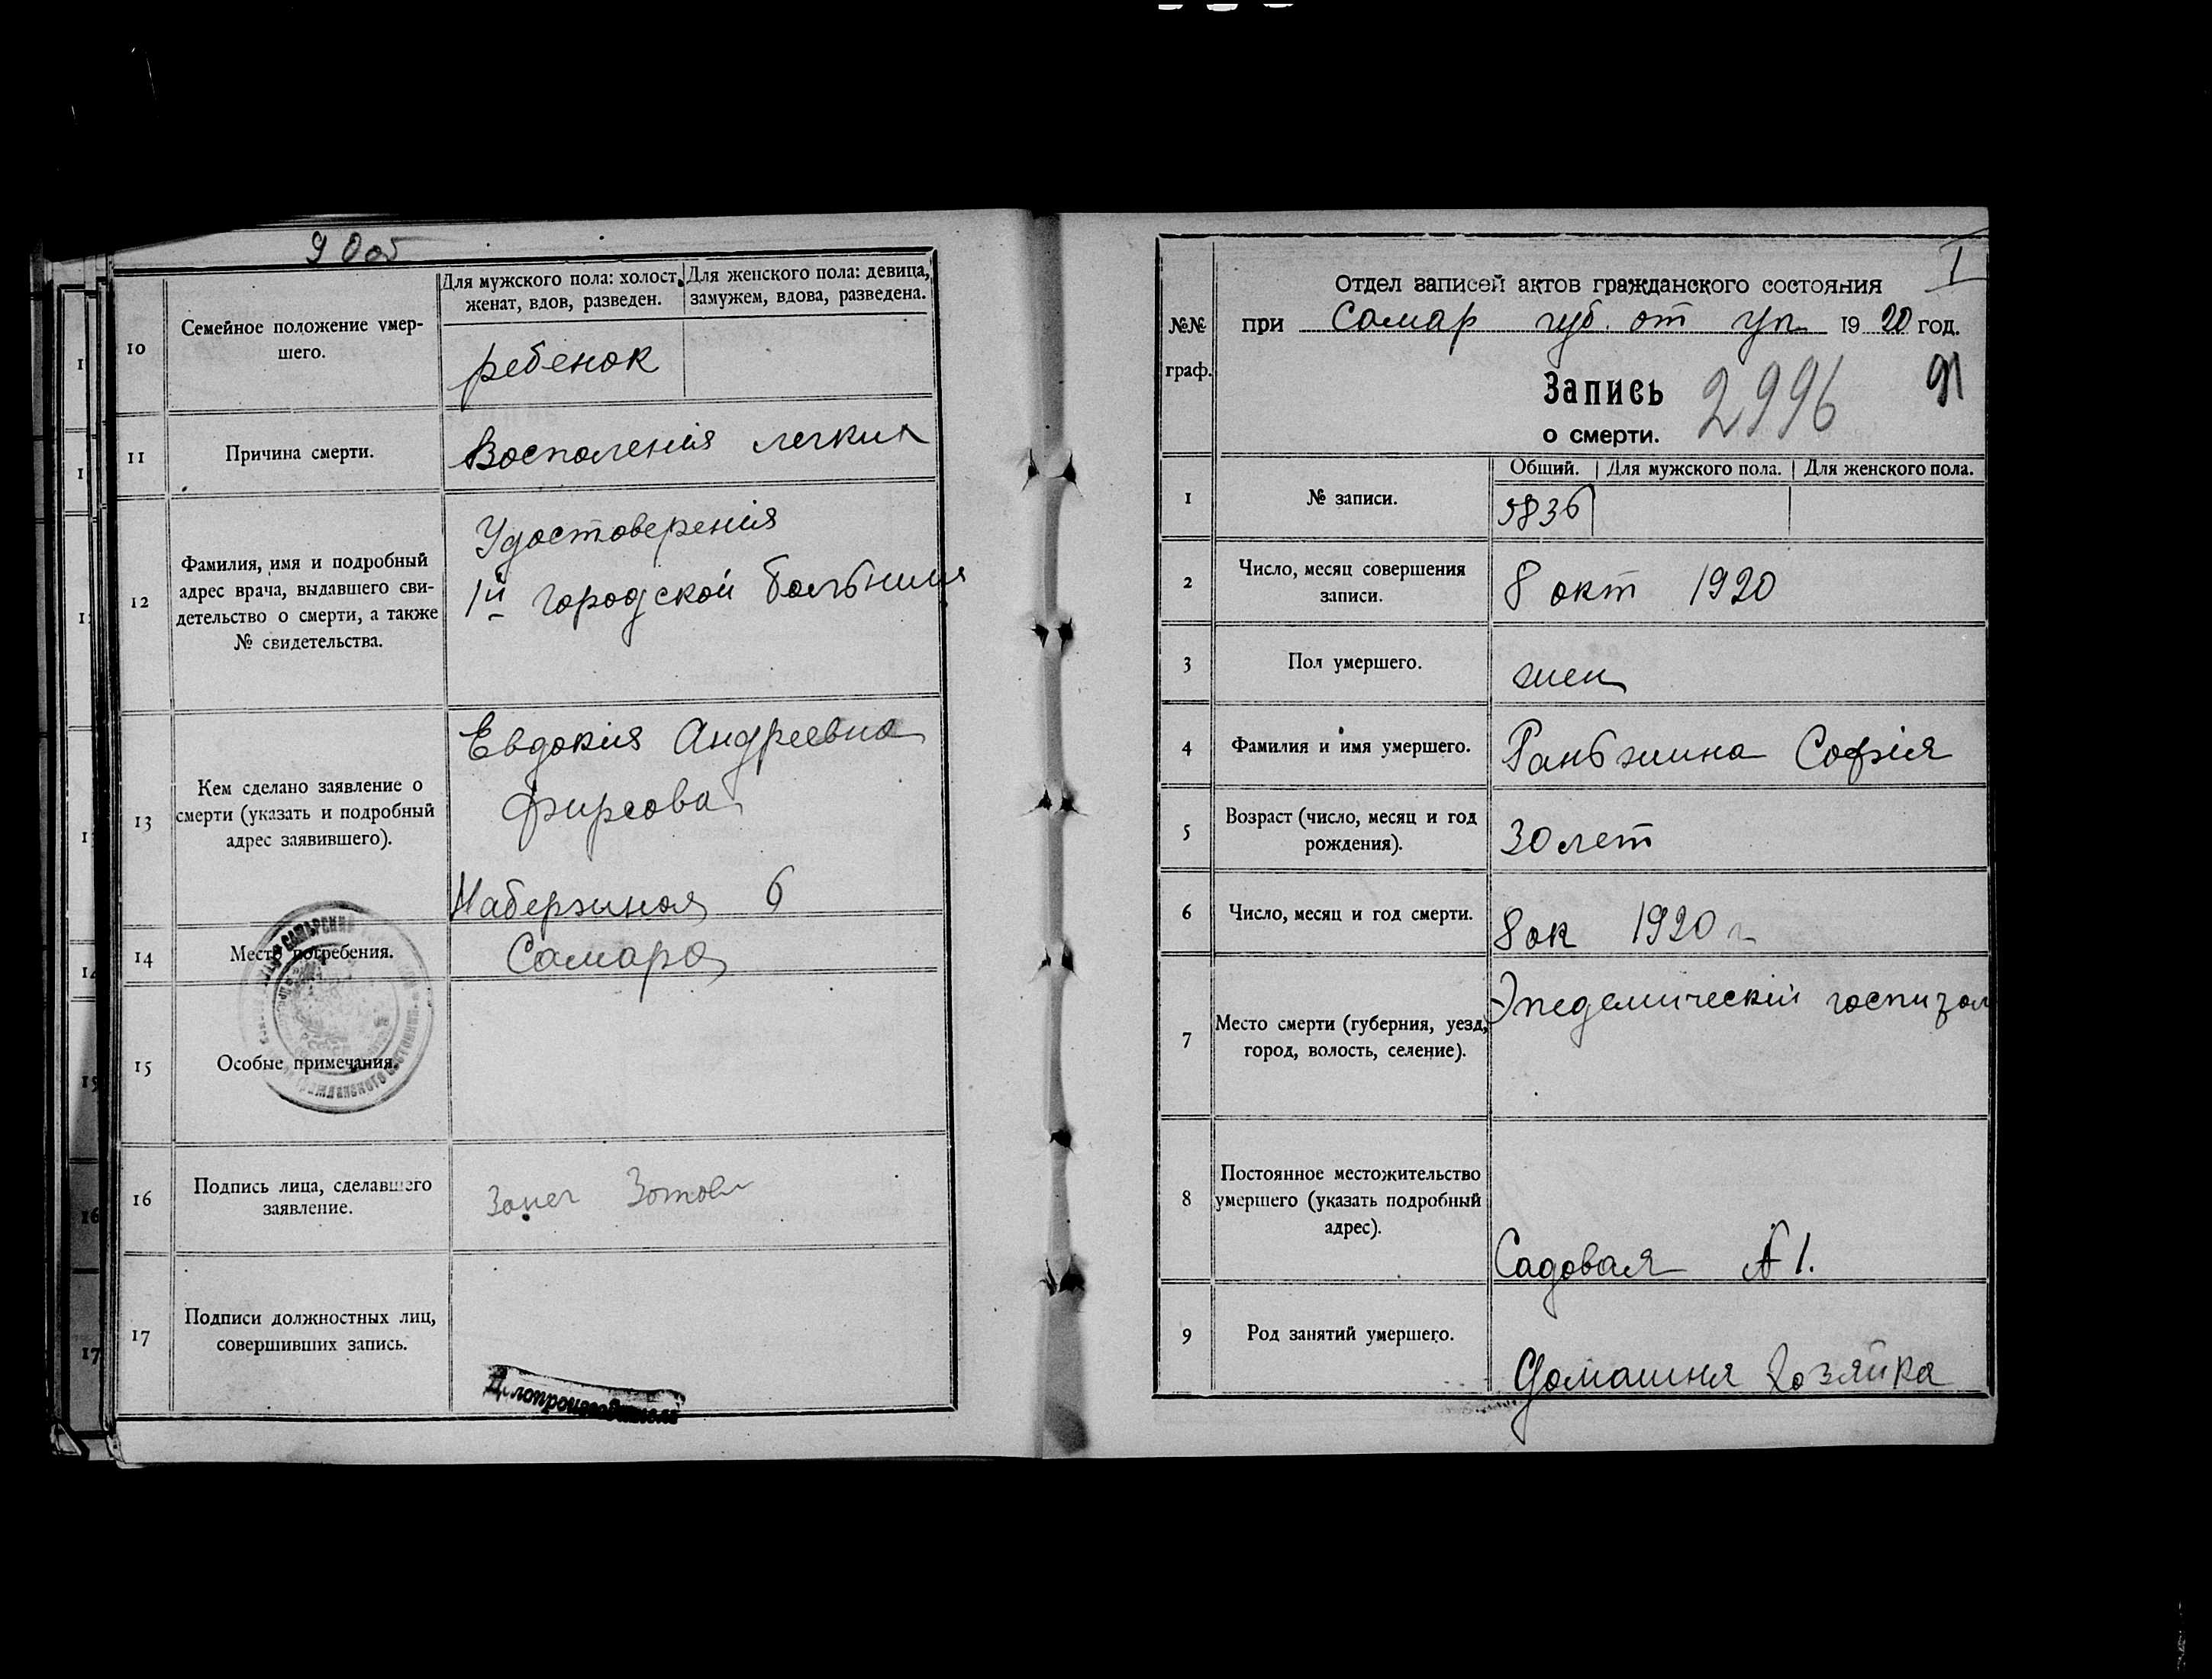 90об
10
Семейное положение умер-
шего.
Для мужского пола: холост,
женат, вдов, разведен.
Для женского пола: девица,
замужем, вдова, разведена.
ребенок
11
Причина смерти.
Восполения легких
12
Фамилия, имя и подробный
адрес врача, выдавшего сви-
детельство о смерти, а также
№ свидетельства.
Удостоверения
1й городской больници
13
Кем сделано заявление о
смерти (указать и подробный
адрес заявившего).
Евдокия Андреевна
Фирсова
Набержная 6
14
Место погребения.
Самара
15
Особые примечания.
16
Подпись лица, сделавшего
заявление.
17
Подписи должностных лиц,
совершивших запись.
Делопроизводитель
I
№№
граф.
Отдел записей актов гражданского состояния
при Самар губ. от уп 1920 год.
Запись
о смерти.
2996
91
1
№ записи.
Общий.
Для мужского пола.
Для женского пола.
5836
2
Число, месяц совершения
записи.
8 окт 1920
3
Пол умершего.
жен
4
Фамилия и имя умершего.
Раньжина Софiя
5
Возраст (число, месяц и год
рождения).
30 лет
6
Число, месяц и год смерти.
8 ок 1920 г
7
Место смерти (губерния, уезд,
город, волость, селение).
Эпедемическiй
8
Постоянное местожительство
умершего (указать подробный
адрес).
Садовая № 1.
9
Род занятий умершего.
Домашня хозяйка